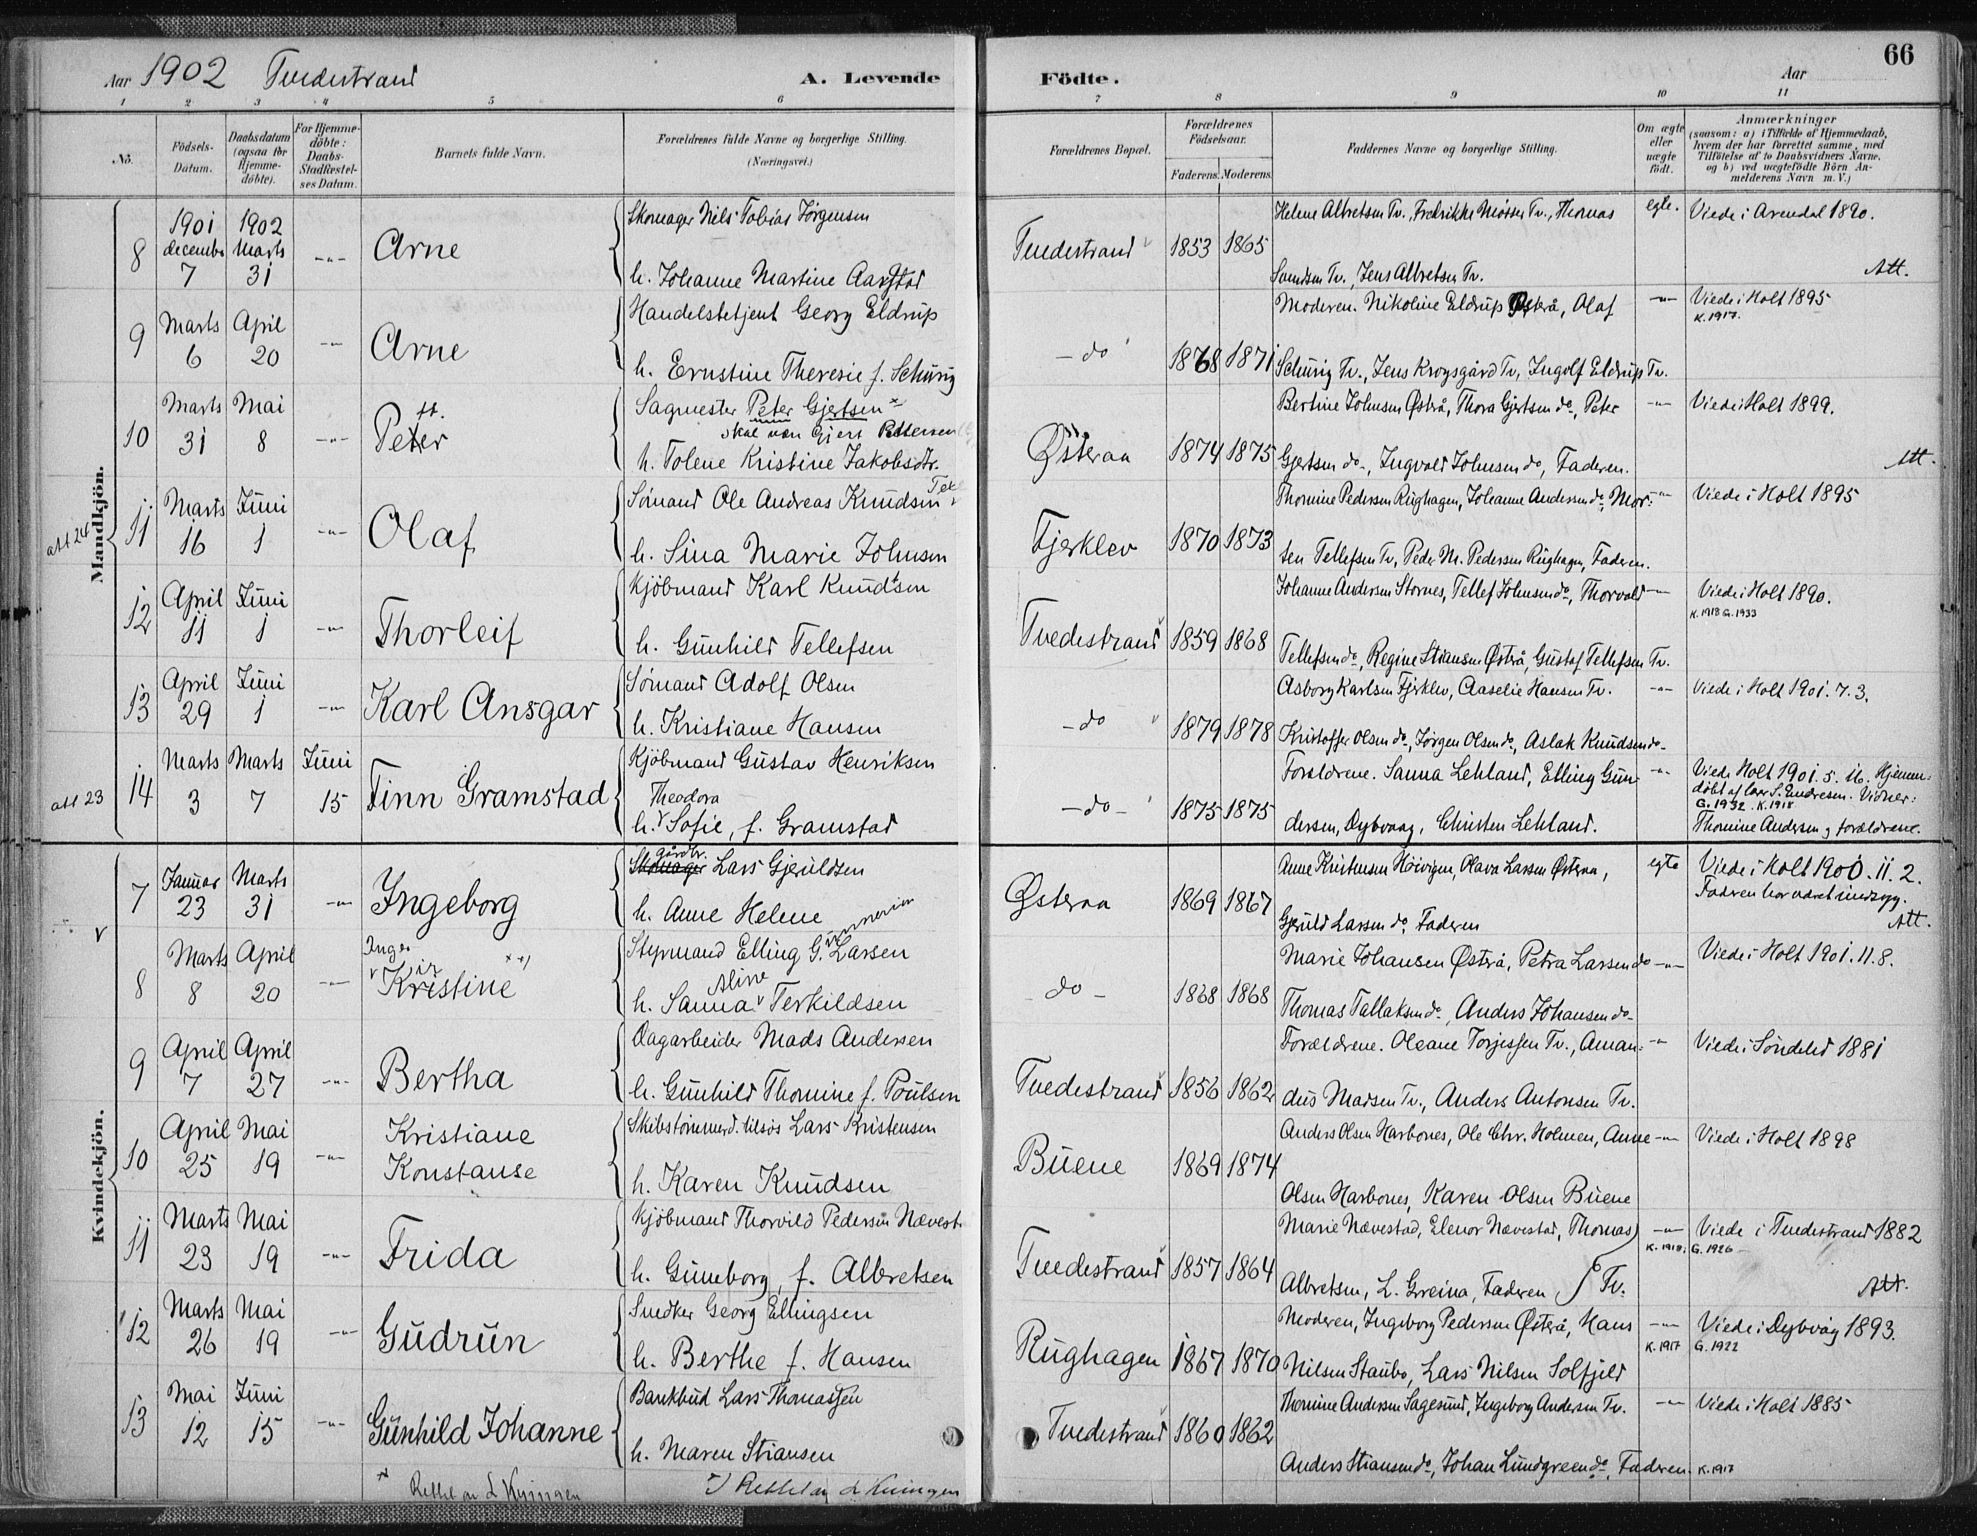 Aar 1902 Tvedestrand A. Levende Födte. Aar 66
1 2 3 4 5 6 7 8 9 10 11
Nö. Födsels-Datum. Daabsdatum (ogsaa for Hjemme-döbte). For Hjemme-döbte: Daabs-Stadfæstel-ses Datum. Barnets fulde Navn. Forældrenes fulde Navne og borgerlige Stilling. (Næringsvei.) Forældrenes Bopæl. Forældrenes Födselsaar. Faderens. Moderens. Faddernes Navne og borgerlige Stilling. Om ægte eller uægte födt. Anmærkninger (saasom: a) i Tilfælde af Hjemmedaab, hvem der har forrettet samme, med Tilföielse af to Daabsvidners Navne, og b) ved uægtefödte Börn An-melderens Navn m. V.)
Mandkjön.
1901 1902 Skomager Nils Tobias Jørgensen Helene Albretsen Tv., Fredrikke Tv., Thomas egte. Viede i Arendal 1890.
8 december 7 Marts 31 -"- Arne Tvedestrand 1853 1865
h. Johanne Martine Aagstad Svendsen Tv., Jens Albretsen Tv. Att.
Handelsbetjent Georg Eldrup Moderen. Nikoline Eldrup Østerå, Olaf -"- Viede i Holt 1895
K. 1917.
9 Marts 6 April 20 -"- Arne -do- 1868 1871
h. Ernstine Theresie f. Schurig Schurig Tv., Jens Krogsgård Tv, Ingolf Eldrup Tv.
Sagmester Peter Gjertsen x Bertine Johnsen Østrå, Thora Gjertsen do, Peter -"- Viede i Holt 1899.
skal være Gjert Pettersen
10 Marts 31 Mai 8 -"- Peter tt. Østeraa 1874 1875
h. Tolene Kristine Jakobsdtr. Gjertsen do, Ingvald Johnsen do, Faderen. Att.
Sømand Ole Andreas Knudsen Thomine Pedersen Rughagen, Johanne Andersen do, Mor- -"- Viede i Holt 1895
att 24 11 Marts 16 Juni 1 -"- Olaf Fjerklev 1870 1873
h. Sina Marie Johnsen ten Tellefsen Tv, Peder M. Pedersen Rughagen, Faderen.
Kjöbmand Karl Knudtsen Johanne Andersen Stornes, Tellef Johnsen do, Thorvald -"- Viede i Holt 1890.
K. 1918 G. 1933
12 April 11 Juni 1 -"- Thorleif Tvedestrand 1859 1868
h. Gunhild Tellefsen Tellefsen do, Regine Stiansen Østrå, Gustaf Tellefsen Tv.
Sømand Adolf Olsen Asborg Karlsen Fjerklev, Aaselie Hansen Tv. -"- Viede i Holt 1901. 7. 3.
13 April 29 Juni 1 -"- Karl Ansgar -do- 1879 1878
h. Kristiane Hansen Kristoffer Olsen do, Jørgen Olsen do, Aslak Knudsen do
Kjöbmand Gustav Henriksen Forældrene. Sanna Lehland, Elling Gun- -"- Viede Holt 1901. 5. 16. Hjemme-
døbt af lær S. Endresen. Vidner:
G. 1932. K. 1918
att 23 14 Marts 3 Marts 7 Juni 15 Finn Gramstad Theodora -do- 1875 1875
h. Sofie, f. Gramstad dersen, Dybvaag, Christen Lehland. Thomine Andersen og forældrene.
Kvindekjön.
Skomager gårdbr. Lars Gjeruldsen Anne Kristensen Høivigen, Olava Larsen Østeraa, egte Viede i Holt 1900. 11. 2.
Faderen har været indsygg.
7 Januar 23 Marts 31 -"- Ingeborg Østeraa 1869 1867
h. Anne Helene Gjeruld Larsen do, Faderen Att.
Styrmand Elling G. Larsen Marie Johansen Østrå, Petra Larsen do -"- Viede i Holt 1901. 11. 8.
8 Marts 8 April 20 -"- Inger Kristine do- 1868 1868
h. Sanna Alive Terkildsen Thomas Tallaksen do, Anders Johansen do
Dagarbeider Mads Andersen Forældrene. Oleane Torjesssen Tv., Aman- -"- Viede i Søndeled 1881
9 April 7 April 27 -"- Bertha Tvedestrand 1856 1862
h. Gunhild Thomine f. Poulsen deus Madsen Tv., Anders Antonsen Tv.
Skibstømmerd. tilsös Lars Kristensen Anders Olsen Harbones, Ole Chr. Holmen, Anne -"- Viede i Holt 1898
10 April 25 Mai 19 -"- Kristiane Konstanse Buene 1869 1874
h. Karen Knudsen Olsen Harbones, Karen Olsen Buene
Kjöbmand Thorvild Pedersen Nævest Marie Nævestad, Elenor Nævestad, Thomas -"- Viede i Tvedestrand 1882
K. 1918; G. 1926
11 Marts 23 Mai 19 -"- Frida Tvedestrand 1857 1864
h. Guneborg, f. Albretsen Albretsen, L. Greina, Faderen Tv. Att.
Snedker Georg Ellingsen Moderen, Ingeborg Pedersen Østrå, Hans -"- Viede i Dybvåg 1893.
K. 1917 G. 1922
12 Marts 26 Mai 19 -"- Gudrun Rughagen 1867 1870
h. Berthe f. Hansen Nilsen Staubo, Lars Nilsen Solfjeld
Bankbud Lars Thomassen Thomine Andersen Sagesund, Ingeborg Andersen Tv. -"- Viede i Holt 1885
13 Mai 12 Juni 15 -"- Gunhild Johanne Tvedestrand 1860 1862
h. Maren Stiansen Anders Stiansen do, Johan Lundgreen do, Faderen. K. 1917